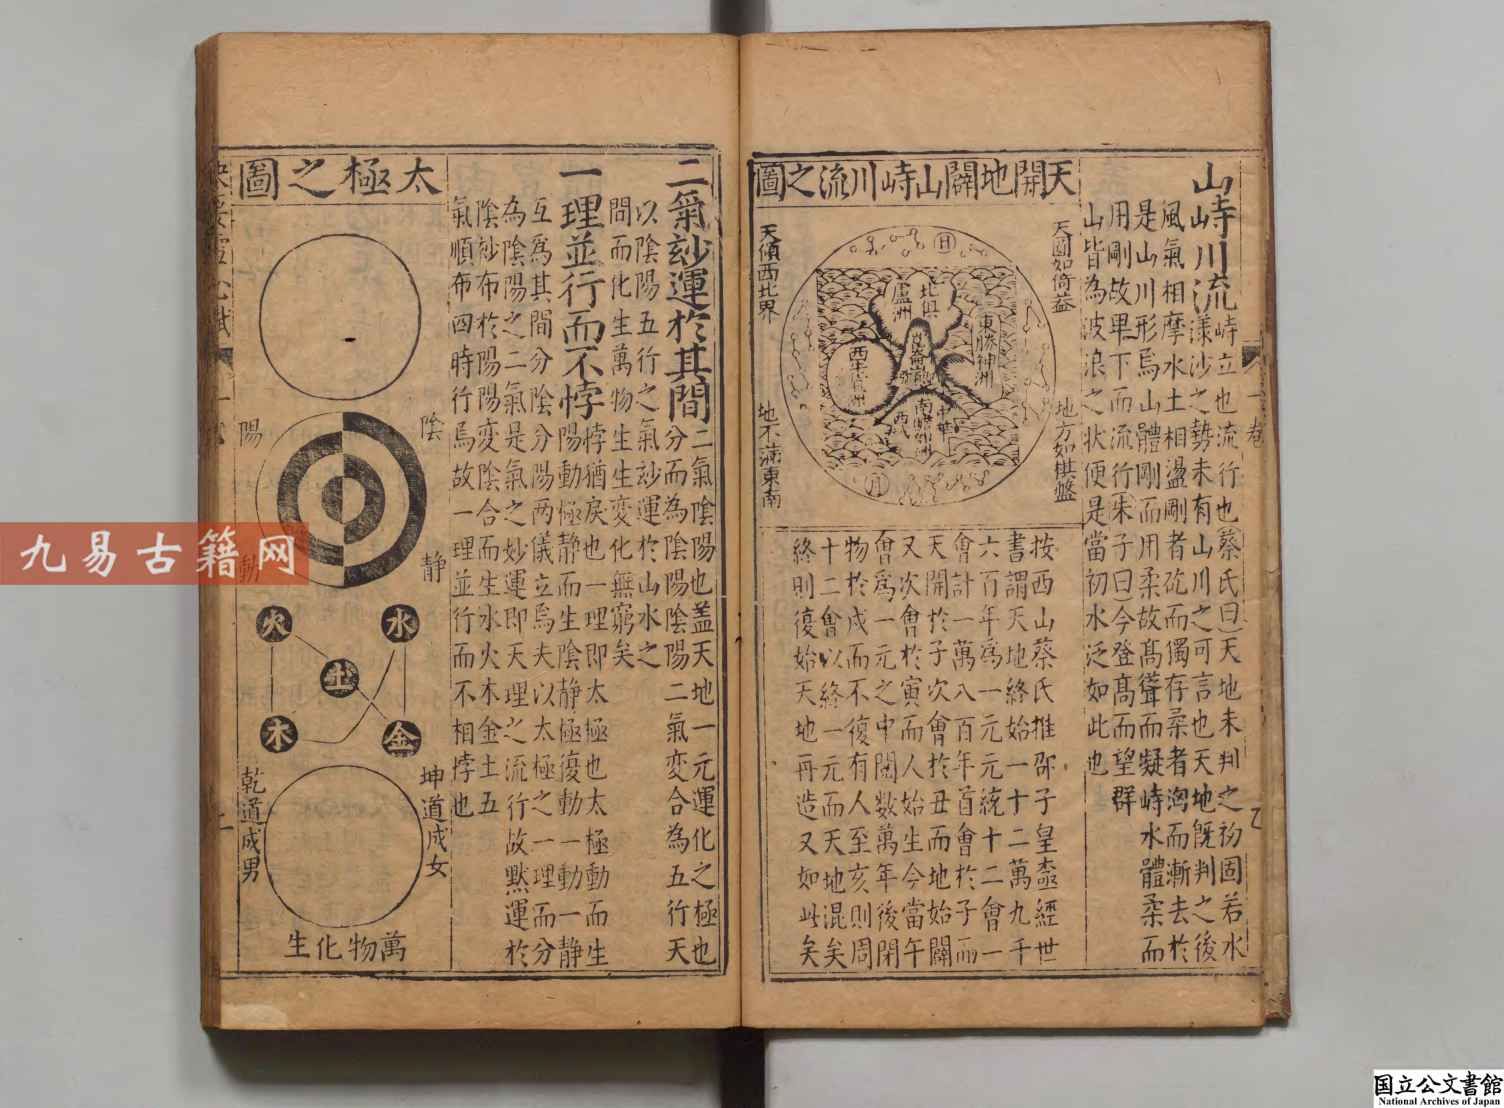 山峙川流峙立也流行也蔡氏曰天地未判之初固若水
漾沙之勢未有山川之可言也天地既判之後
風氣相摩水土相盪剛者屹而獨存柔者淘而漸去於
是山川形焉山體剛而用柔故髙聳而凝峙水體柔而
用剛故畢下而流行朱子曰今登髙而望群
山皆為波浪之状便是當初水泛如此也
天開地闢山峙川流之圖
天圓如倚盖
地方如棋盤
天傾西北界
地不滿東南
日
月
北俱
盧洲
東勝神洲
崑崙
中華
西牛賀洲
按西山蔡氏推邵子皇極經世
書謂天地終始一十二萬九千
六百年為一元元統十二會一
會計一萬八百年首會於子而
天開於子次會於丑而地始闢
又次會於寅而人始生今當午
會爲一元之中閱數萬年後閉
物於戍而不復有人至亥則周
十二會以終一元而天地混矣
終則復始天地再造又如此矣
二氣玅運於其間二氣陰陽也盖天地一元運化之極也
分而為陰陽陰陽二氣変合為五行天
以陰陽五行之氣玅運於山水之
間而化生萬物生生変化無窮矣
一理並行而不悖悖猶戾也一理即太極也太極動而生
陽動極静而生陰静極復動一動一静
互爲其間分陰分陽两儀立焉夫以太極之一理而分
為陰陽之二氣是氣之妙運即天理之流行故默運於
陰玅布於陽陽変陰合而生水火木金土五
氣順布四時行焉故一理並行而不相悖也
太極之圖
陰
静
陽
動
水
火
土
金
木
坤道成女
乾道成男
萬物化生
一卷
九易古籍网
国立公文書館
National Archives of Japan